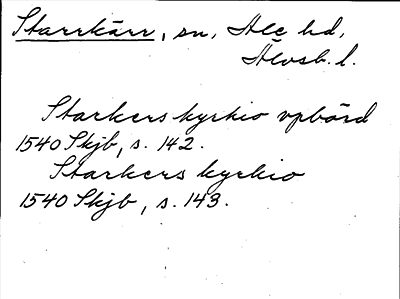 Starrkärr, sn, Ale hd,
Älvsb. l.
Starkers kyrkio vpbörd
1540 Skjb, s. 142.
Starkers kyrkio
1540 Skjb, s. 143.